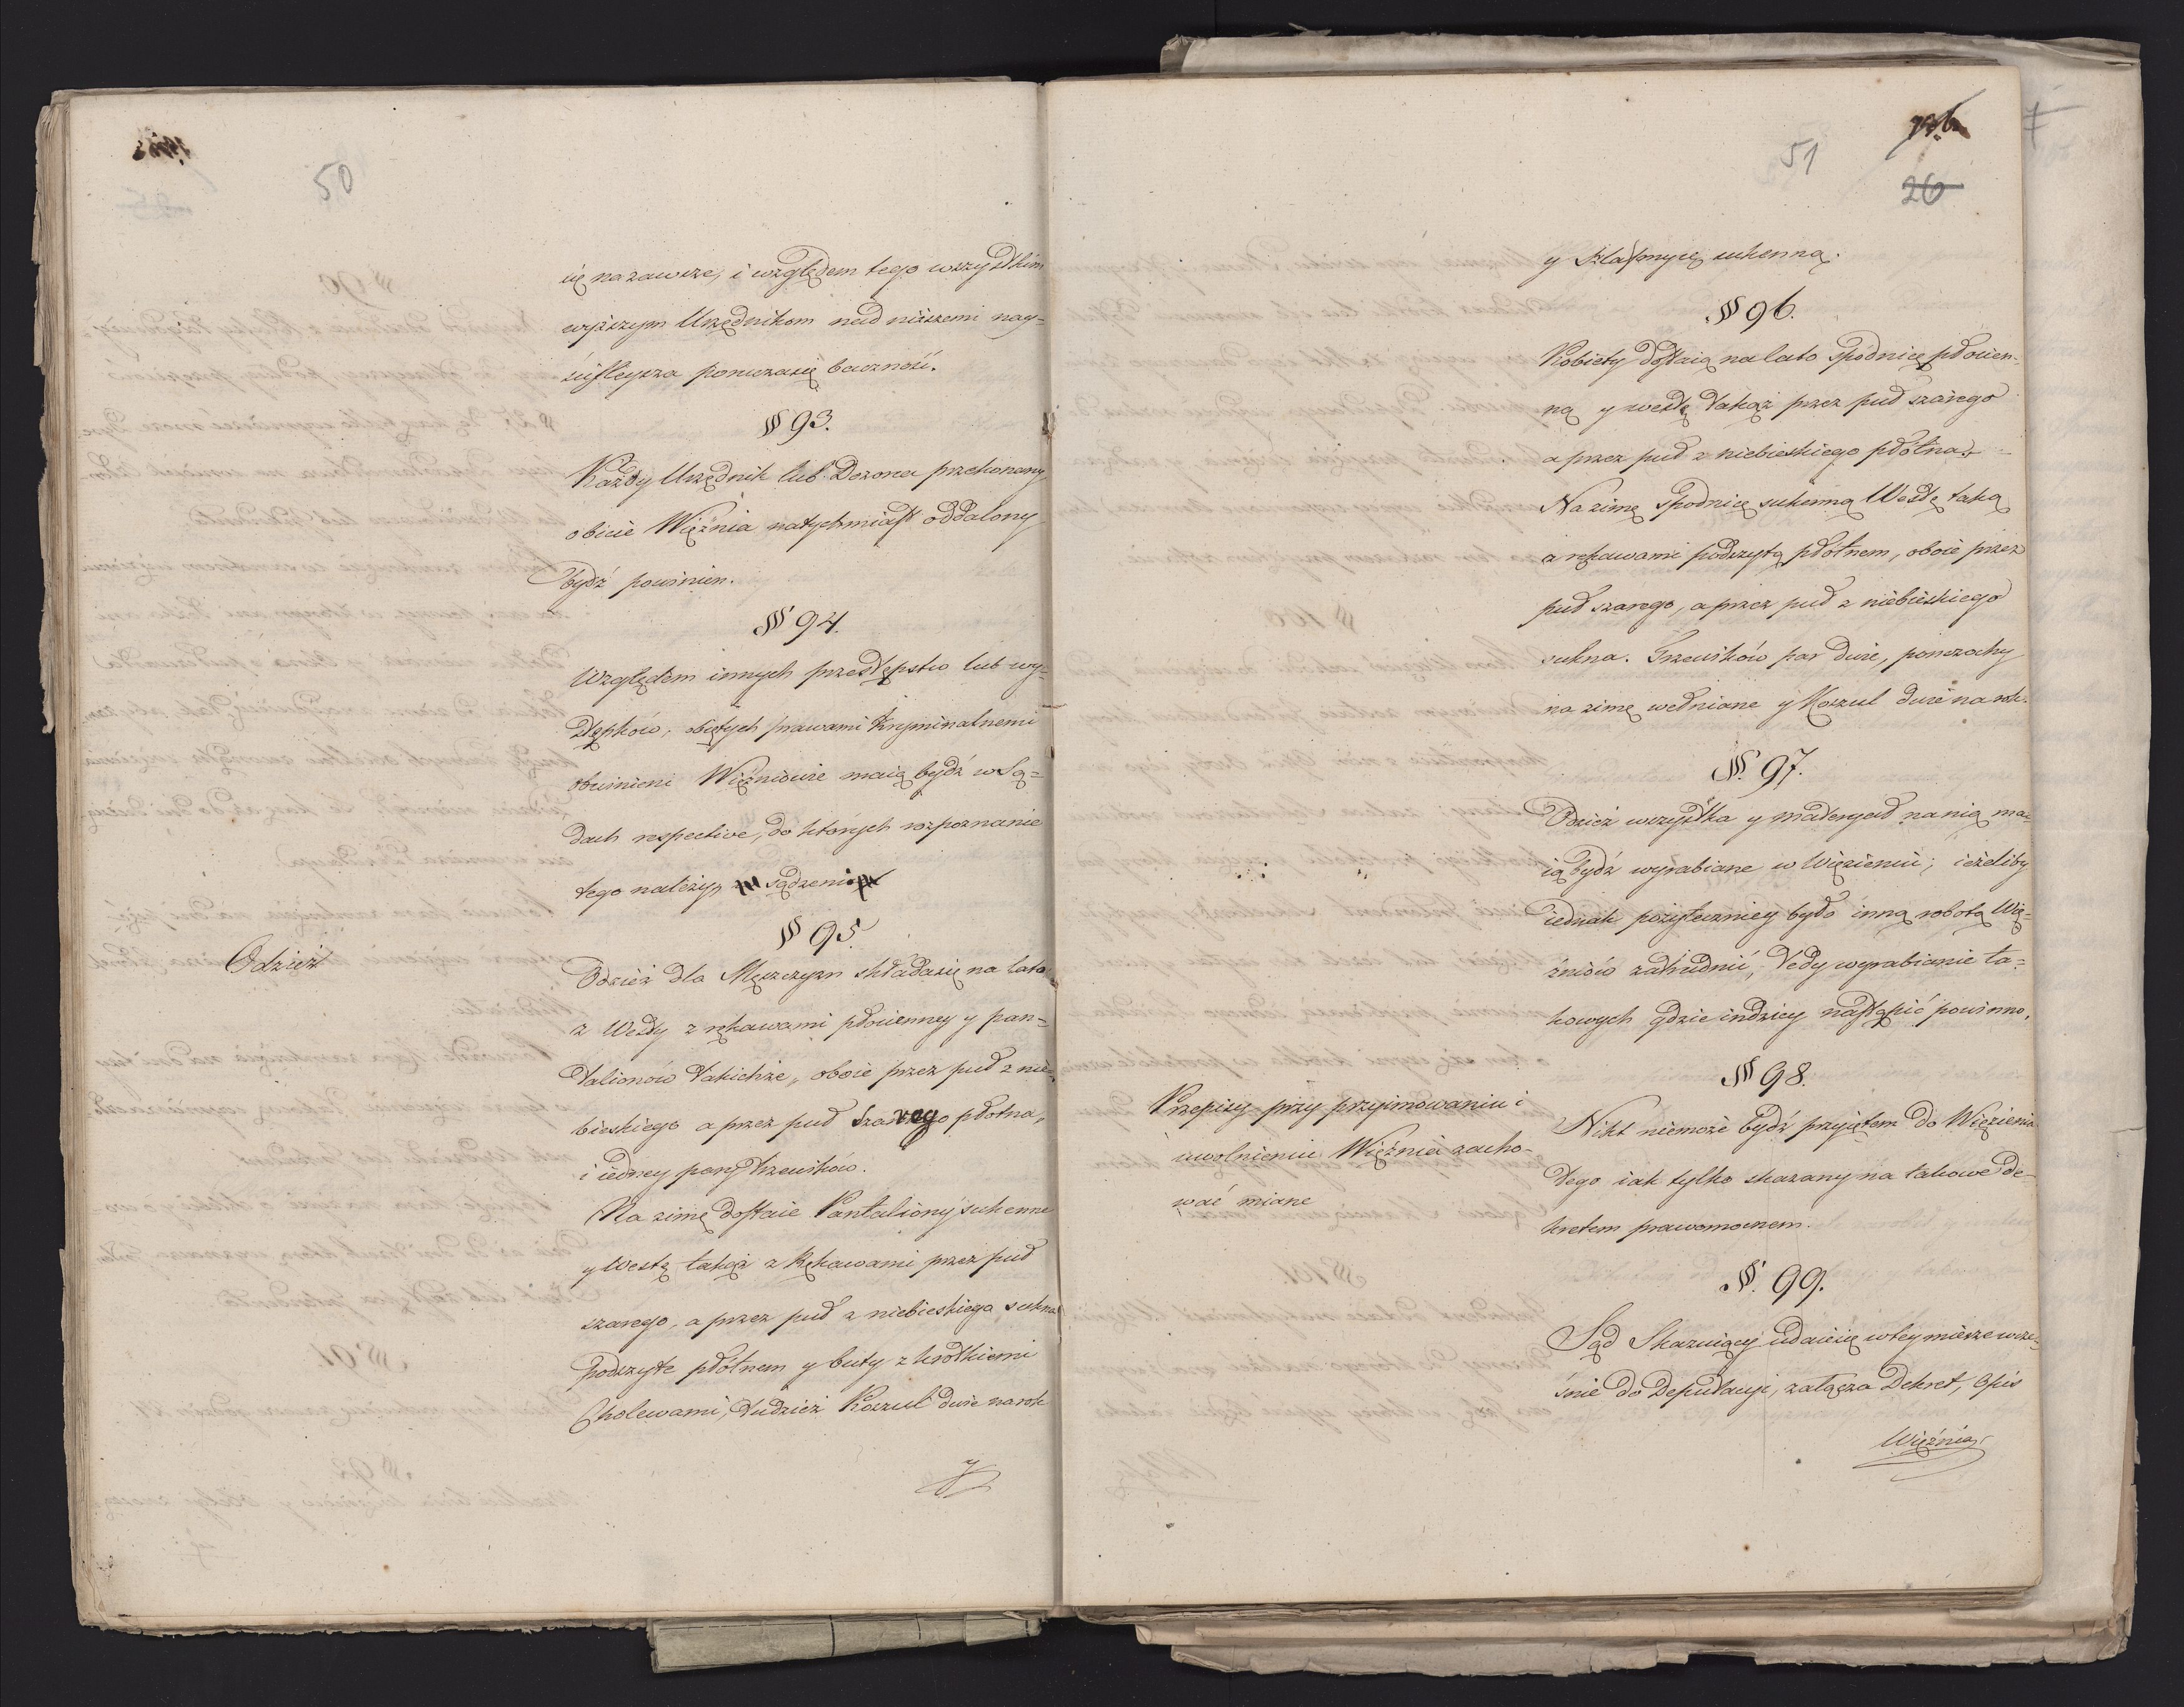 50
się na zawsze, i względem tego wszystkim
wyższym Urzędnikom nad niższemi nay=
ściśleysza porucza się baczność.
§ 93.
Każdy Urzędnik lub Dozorca przekonany
o bicie Więźnia natychmiast oddalony
bydź powinien.
§ 94.
Względem innych przestępstw lub wy=
stępków, objętych prawami Kryminalnemi
obwinieni Więźniowie maią bydź w Są=
dach respective, do których rozpoznanie
tego należy, sądzeni
§ 95.
Odzież
Odzież dla Męszczyzn składa się na lato
z Westy z rękawami płócienney y pan=
talionów takichże, oboie przez puł z nie=
bieskiego a przez puł szarego płótna,
i iedney pary trzewików.
Na zimę dostaie Pantaliony sukenne
y Westę takąż z Rękawami przez puł
szarego, a przez puł z niebieskiego sukna
podszyte płótnem y buty z krótkiemi
Cholewami, tudzież Koszul dwie na rok
y
51
26
y Szlafmycę sukenną.
§ 96.
Kobiety dostaią na lato spódnicę płócien=
ną y westę takąż przez puł szarego
a przez puł z niebieskiego płótna.
Na zimę spodnicę sukenną Westę taką
z rękawami podszytą płótnem, oboie przez
puł szarego, a przez puł z niebieskiego
sukna. Trzewików par dwie, ponczochy
na zimę wełniane y Koszul dwie na rok.
§. 97.
Odzież wszystka y materyał na nią ma=
ią bydź wyrabiane w Więzieniu; ieżeliby
iednak pożyteczniey było inną robotą Wię=
źniów zatrudnić, tedy wyrabianie ta=
kowych gdzie indziey nastąpić powinno.
§ 98.
Przepisy przy przyimowaniu i
uwolnieniu Więźnia zacho=
wać miane
Nikt niemoże bydź przyiętem do Więzienia
tego iak tylko skazany na takowe De=
kretem prawomocnem.
§. 99.
Sąd Skazuiący udaie się w tey mierze wcze=
śnie do Deputacyi, załącza Dekret, Opis
Więźnia,